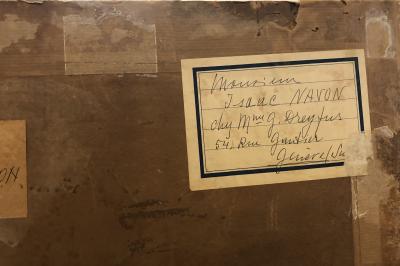 Monsieur
Isaac NAVON
chez Mme G. Dreyfus
54, Rue
Genève/Su
ON